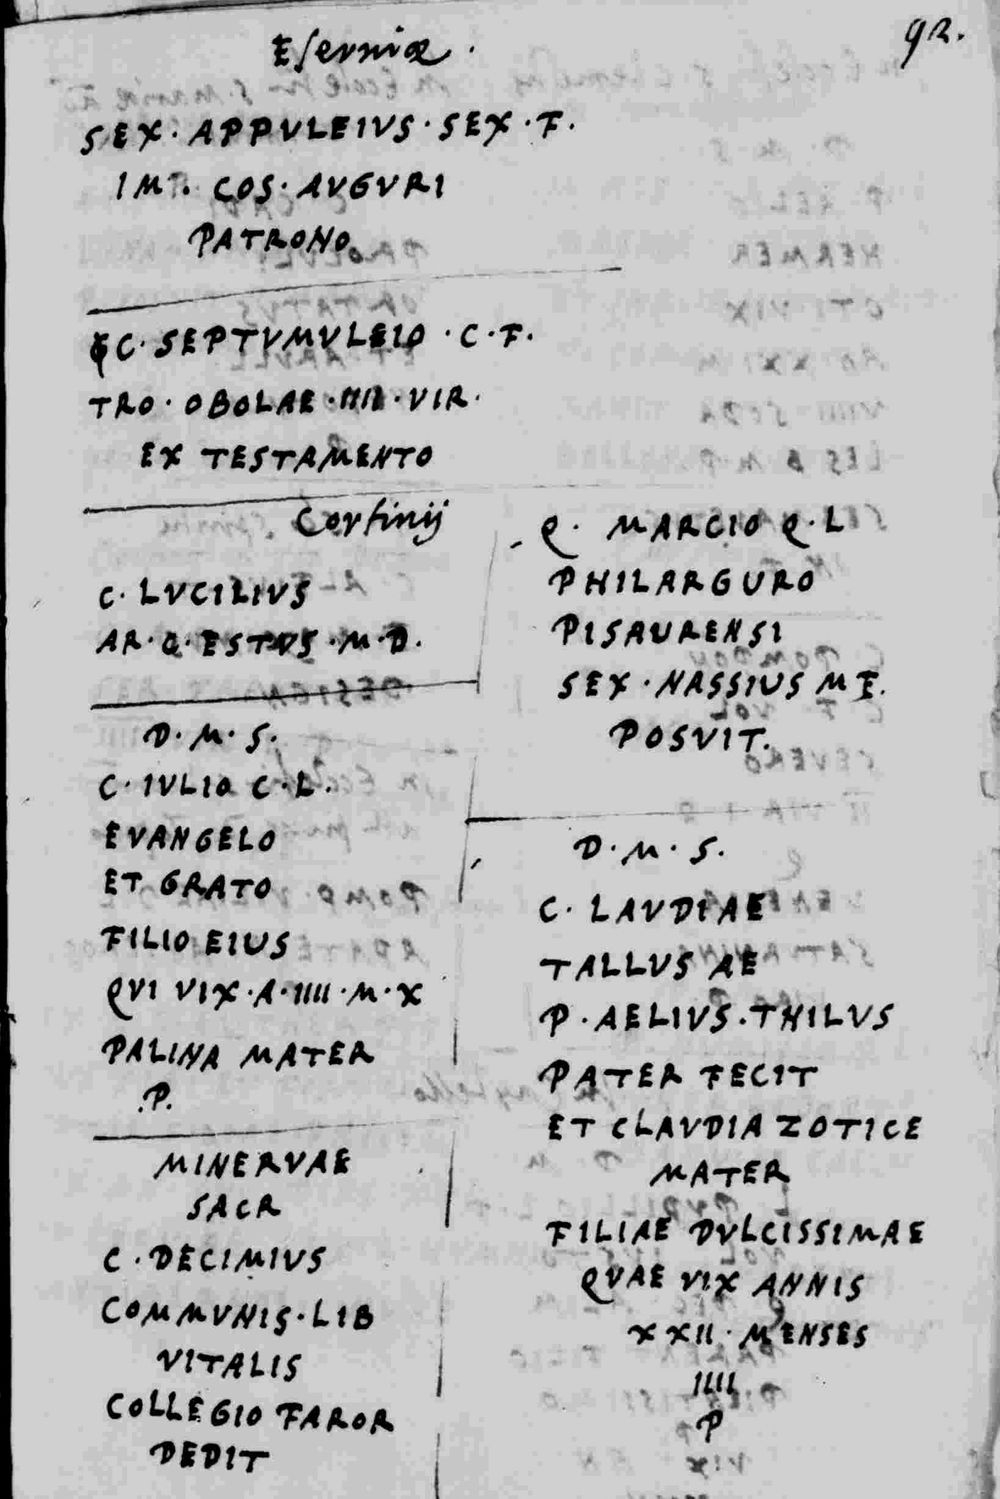 92.
Eserniæ.
SEX · APPVLEIVS · SEX · F.
IMP. COS · AVGVRI
PATRONO
C · SEPTVMVLEIO · C · F.
TRO · OBOLAE · IIII · VIR.
EX TESTAMENTO
Corfinij
C · LVCILIVS
AR · Q · ESTVS · M · D.
D · M · S.
C · IVLIO C · L.
EVANGELO
ET GRATO
FILIO EIUS
QVI VIX · A · IIII · M · X
PALINA MATER
.P.
MINERVAE
SACR
C · DECIMIVS
COMMVNIS · LIB
VITALIS
COLLEGIO FAROR
DEDIT
Q · MARCIO Q · L
PHILARGURO
PISAURENSI
SEX · NASSIUS M F.
POSVIT.
D · M · S.
C · LAVDIAE
TALLVS AE
P · AELIVS · THILVS
PATER FECIT
ET CLAVDIA ZOTICE
MATER
FILIAE DVLCISSIMAE
QVAE VIX ANNIS
XXII · MENSES
IIII
P